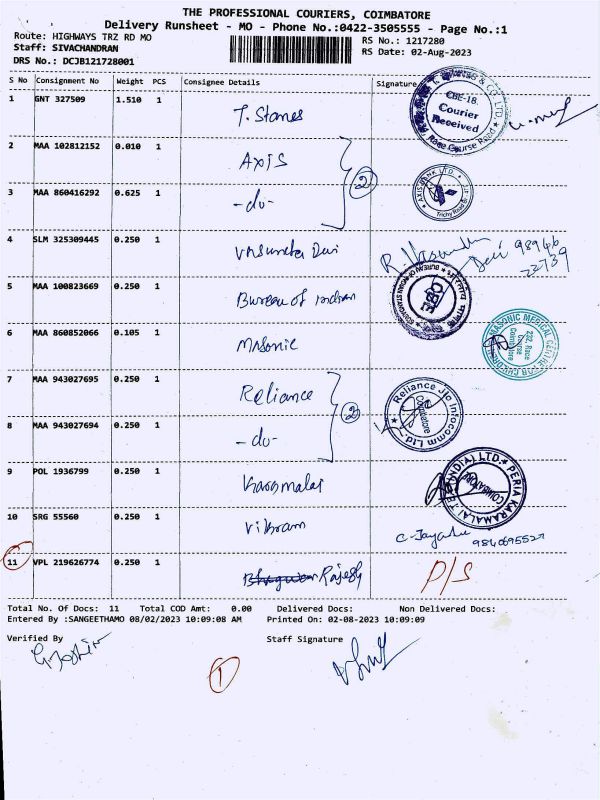 THE PROFESSIONAL COURIERS, COIMBATORE
Delivery Runsheet - MO - Phone No.:0422-3505555 - Page No.:1
Route: HIGHWAYS TRZ RD MO RS No.: 1217280
Staff: SIVACHANDRAN RS Date: 02-Aug-2023
DRS No.: DCJB121728001
S No Consignment No Weight PCS Consignee Details Signature
1 GNT 327509 1.510 1 T. Stanes
CBE-18. Courier Received Race Course Road
2 MAA 102812152 0.010 1 AXIS
2
3 MAA 860416292 0.625 1 -do-
AXIS BANK LTD. Trichy Road
4 SLM 325309445 0.250 1 Vasumathi Devi R. Vasumathi Devi 98946 22739
5 MAA 100823669 0.250 1 Bureau of Indian
BUREAU OF INDIAN STANDARDS
6 MAA 860852066 0.105 1 Masonic
MASONIC MEDICAL CENTRE FOR CHILDREN 232, Race Course Coimbatore
7 MAA 943027695 0.250 1 Reliance
2
8 MAA 943027694 0.250 1 -do-
Reliance Jio Infocomm Ltd. Coimbatore
9 POL 1936799 0.250 1 Karamalai
(INDIA) LTD. PERIA KARAMALAI COIMBATORE
10 SRG 55560 0.250 1 Vikram
11 VPL 219626774 0.250 1 Rajesh P/S
Total No. Of Docs: 11 Total COD Amt: 0.00 Delivered Docs: Non Delivered Docs:
Entered By :SANGEETHAMO 08/02/2023 10:09:08 AM Printed On: 02-08-2023 10:09:09
Verified By Staff Signature
1